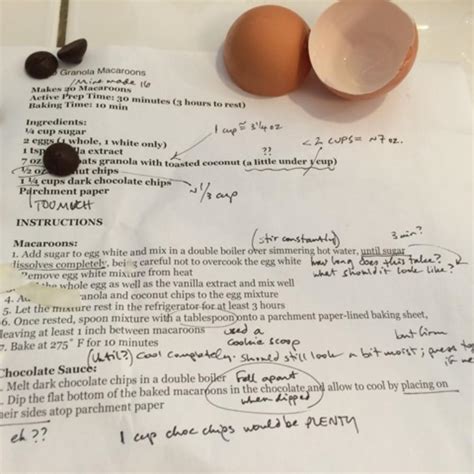 Granola Macaroons
/Mine made 16
Makes 20 Macaroons
Active Prep Time: 30 minutes (3 hours to rest)
Baking Time: 10 min
Ingredients:
¼ cup sugar
1 cup ≅ 3¼ oz
2 eggs (1 whole, 1 white only)
< 2 cups = ~7 oz.
1 tsp la extra
??
7 oz ats granola with toasted coconut (a little under 1 cup)
½ oz nut chips
~ 1/3 cup
1 ¼ cups dark chocolate chips
Parchment paper
TOO MUCH
INSTRUCTIONS
Macaroons:
(stir constantly)
3 min?
1. Add sugar to egg white and mix in a double boiler over simmering hot water, until sugar
dissolves completely, being careful not to overcook the egg white
how long does this take?
Remove egg white mixture from heat
what should it look like?
the whole egg as well as the vanilla extract and mix well
4. A anola and coconut chips to the egg mixture
5. Let the mixture rest in the refrigerator for at least 3 hours
6. Once rested, spoon mixture with a tablespoon onto a parchment paper-lined baking sheet,
leaving at least 1 inch between macaroons
used a
cookie scoop
7. Bake at 275° F for 10 minutes
but firm
(Until?) Cool completely. Should still look a bit moist; press to
Chocolate Sauce:
. Melt dark chocolate chips in a double boiler
Fell apart
when dipped
. Dip the flat bottom of the baked macaroons in the chocolate and allow to cool by placing on
eir sides atop parchment paper
eh ??
1 cup choc chips would be PLENTY